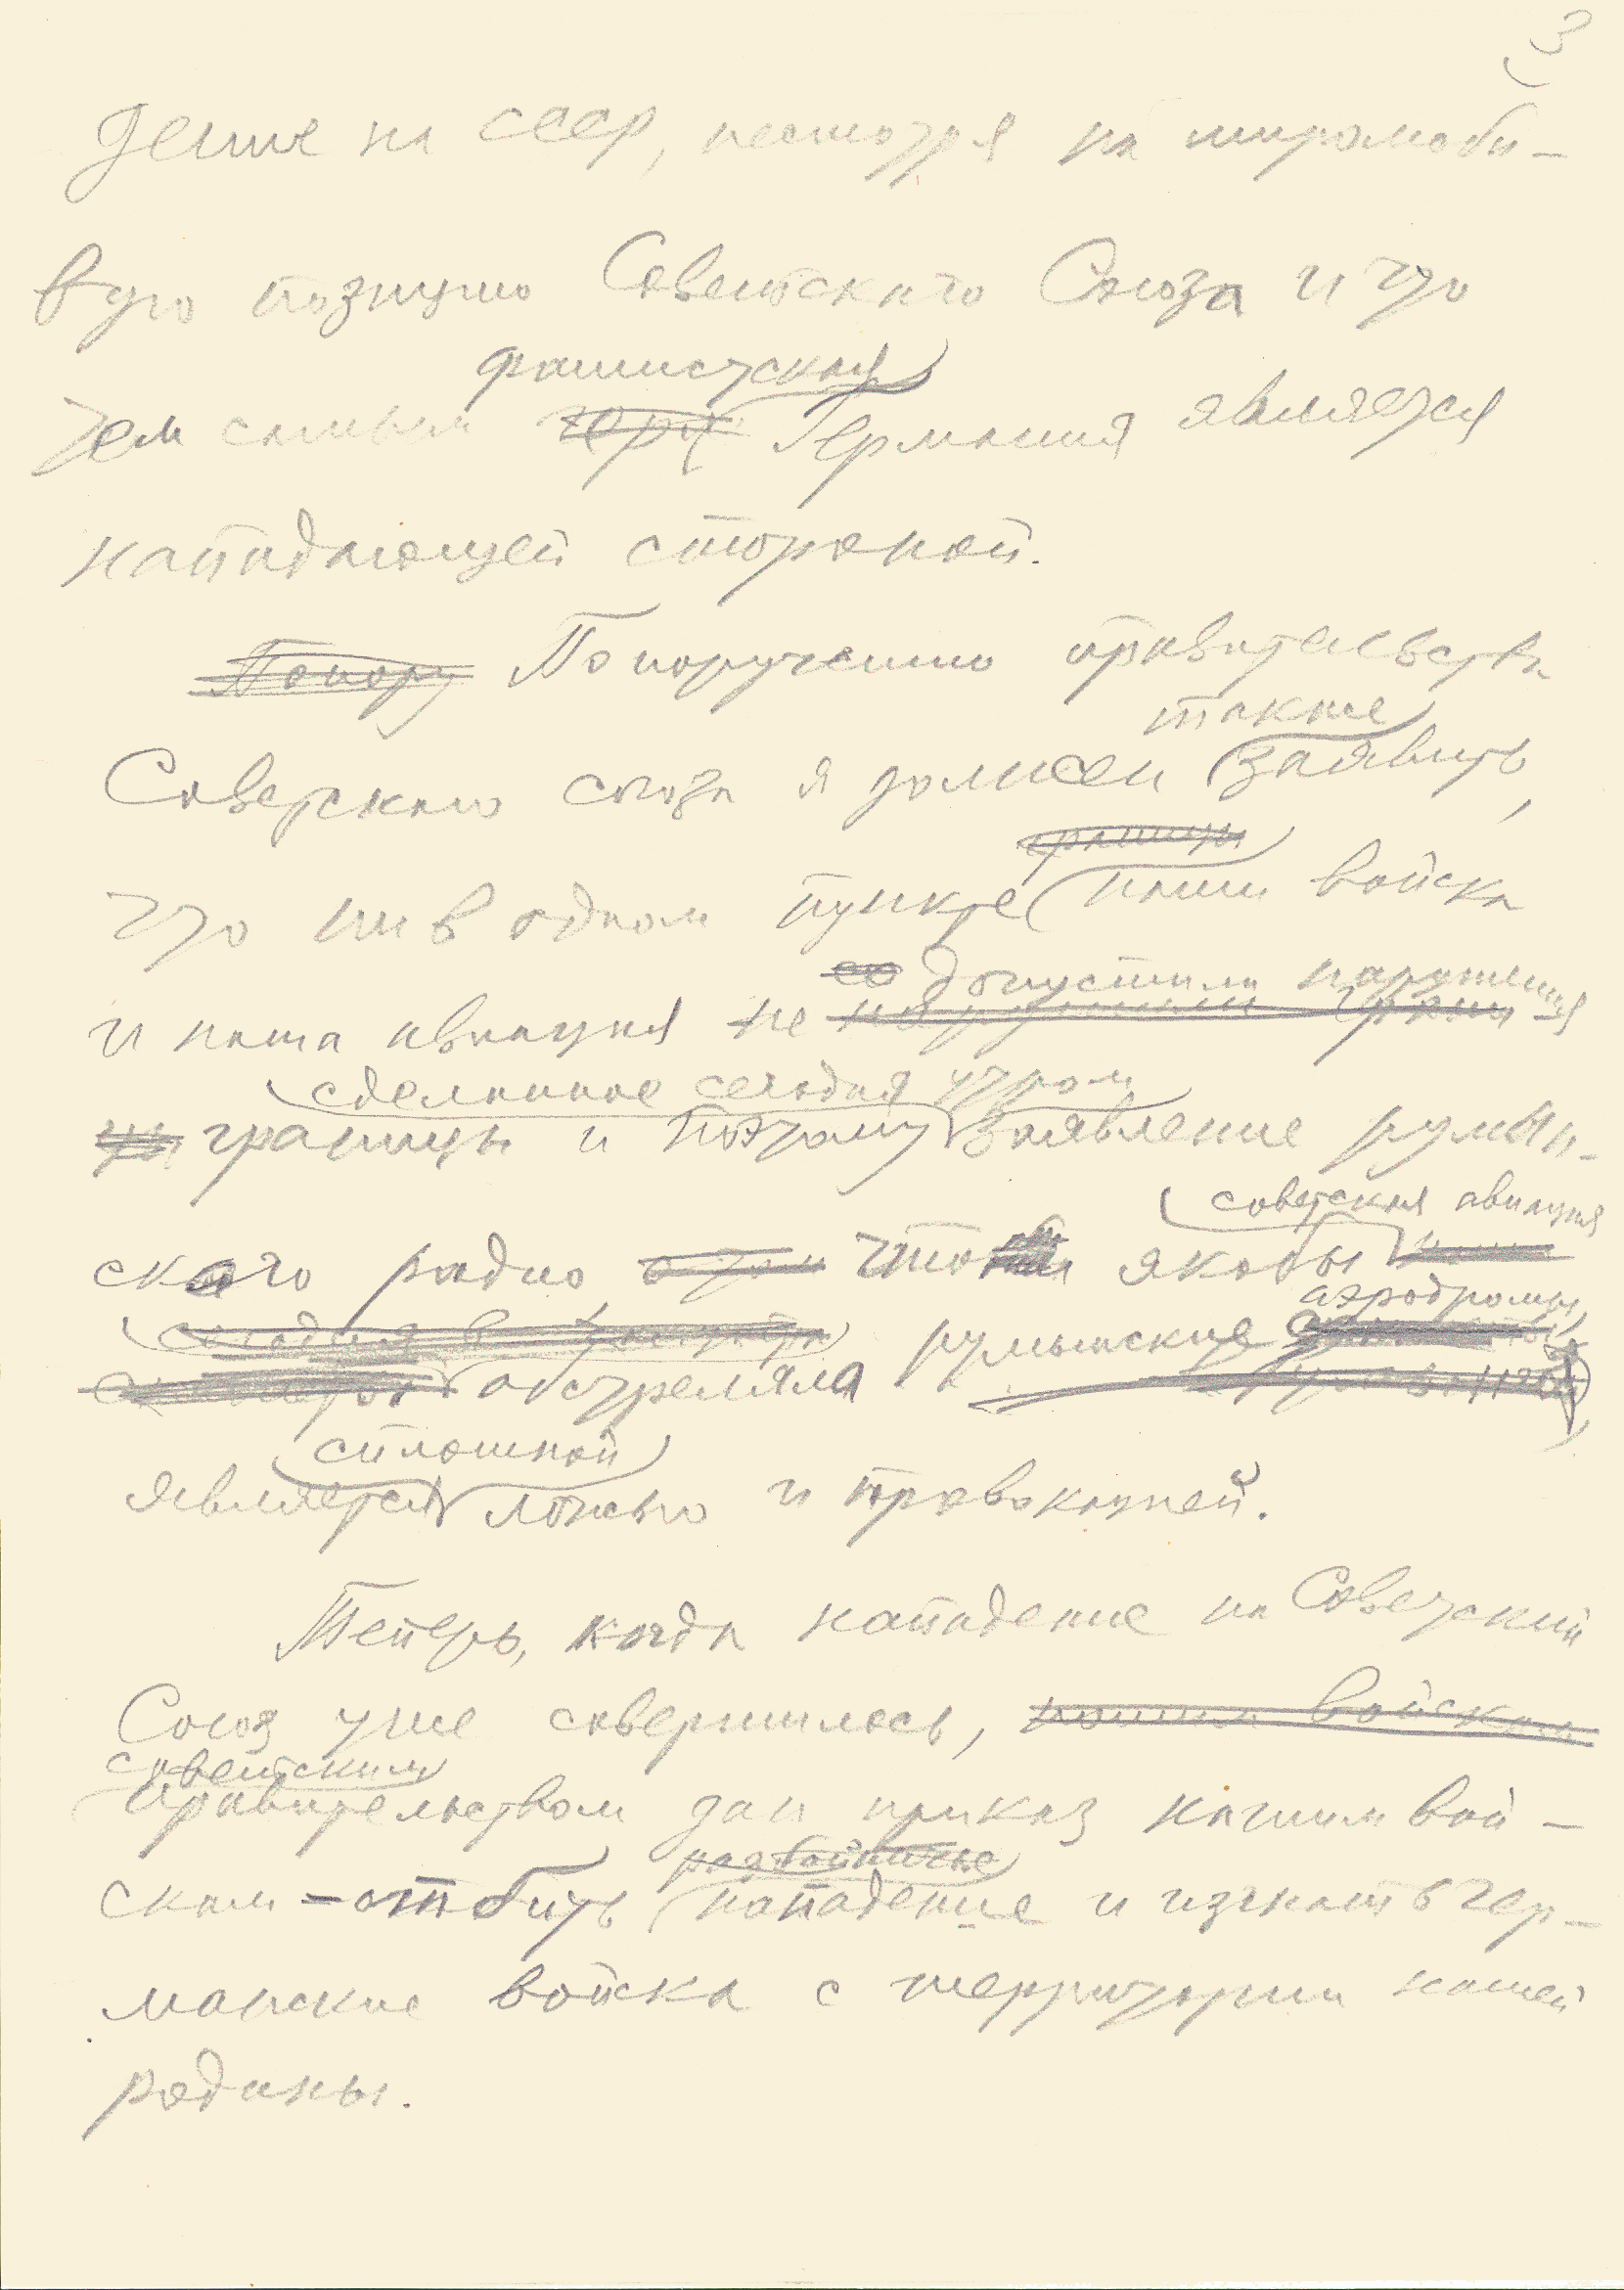 3
дение на СССР, несмотря на миролюби-
вую позицию Советского Союза и что
фашистская
тем самым гер Германия является
нападающей стороной.
По пору По поручению правительства
также
Советского союза я должен заявить,
границы
что ни в одном пункте наши войска
допустили нарушения
и наша авиация не нарушили грани
сделанное сегодня утром
цы границы и поэтому заявление румын-
советская авиация
ского радио что якобы
аэродромы,
румынские
обстреляла
сплошной
является ложью и провокацией.
Теперь, когда нападение на Советский
Союз уже совершилось, нашим войскам
советским
Правительством дан приказ нашим вой-
разбойничье
скам - отбить нападение и изгнать гер-
манские войска с территории нашей
родины.